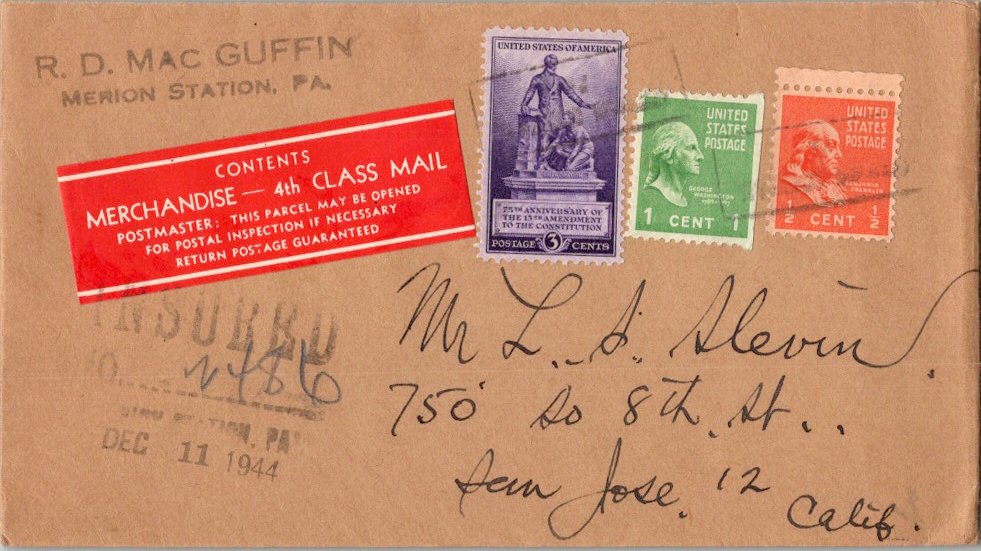 R. D. MAC GUFFIN
MERION STATION, PA.
CONTENTS
MERCHANDISE — 4th CLASS MAIL
POSTMASTER: THIS PARCEL MAY BE OPENED
FOR POSTAL INSPECTION IF NECESSARY
RETURN POSTAGE GUARANTEED
UNITED STATES OF AMERICA
75TH ANNIVERSARY OF
THE 13TH AMENDMENT
TO THE CONSTITUTION
POSTAGE 3 CENTS
UNITED
STATES
POSTAGE
GEORGE
WASHINGTON
1 CENT 1
UNITED
STATES
POSTAGE
BENJAMIN
FRANKLIN
1/2 CENT 1/2
INSURED
STATION, PA
DEC 11 1944
Mr L. S. Slevin.
750 So 8th. St..
San Jose. 12
Calif.